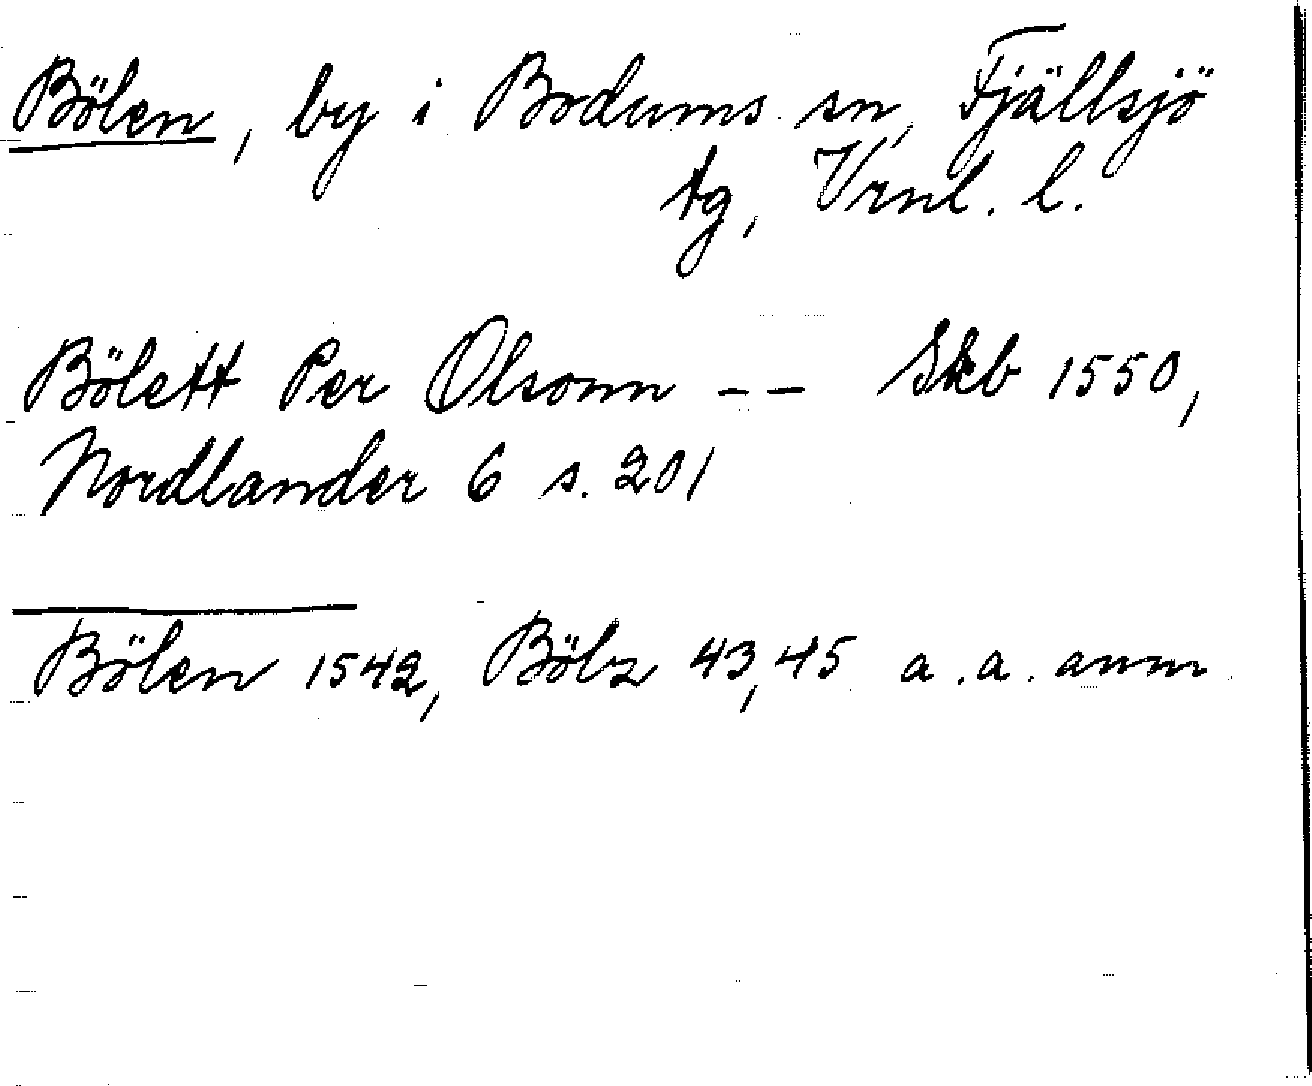 Bölen, by i Bodums sn, Fjällsjö
tg, Vrnl. l.
Bölett Per Olsonn -- Skb 1550,
Nordlander 6 s. 201
Bölen 1542, Bölz 43, 45 a.a. anm